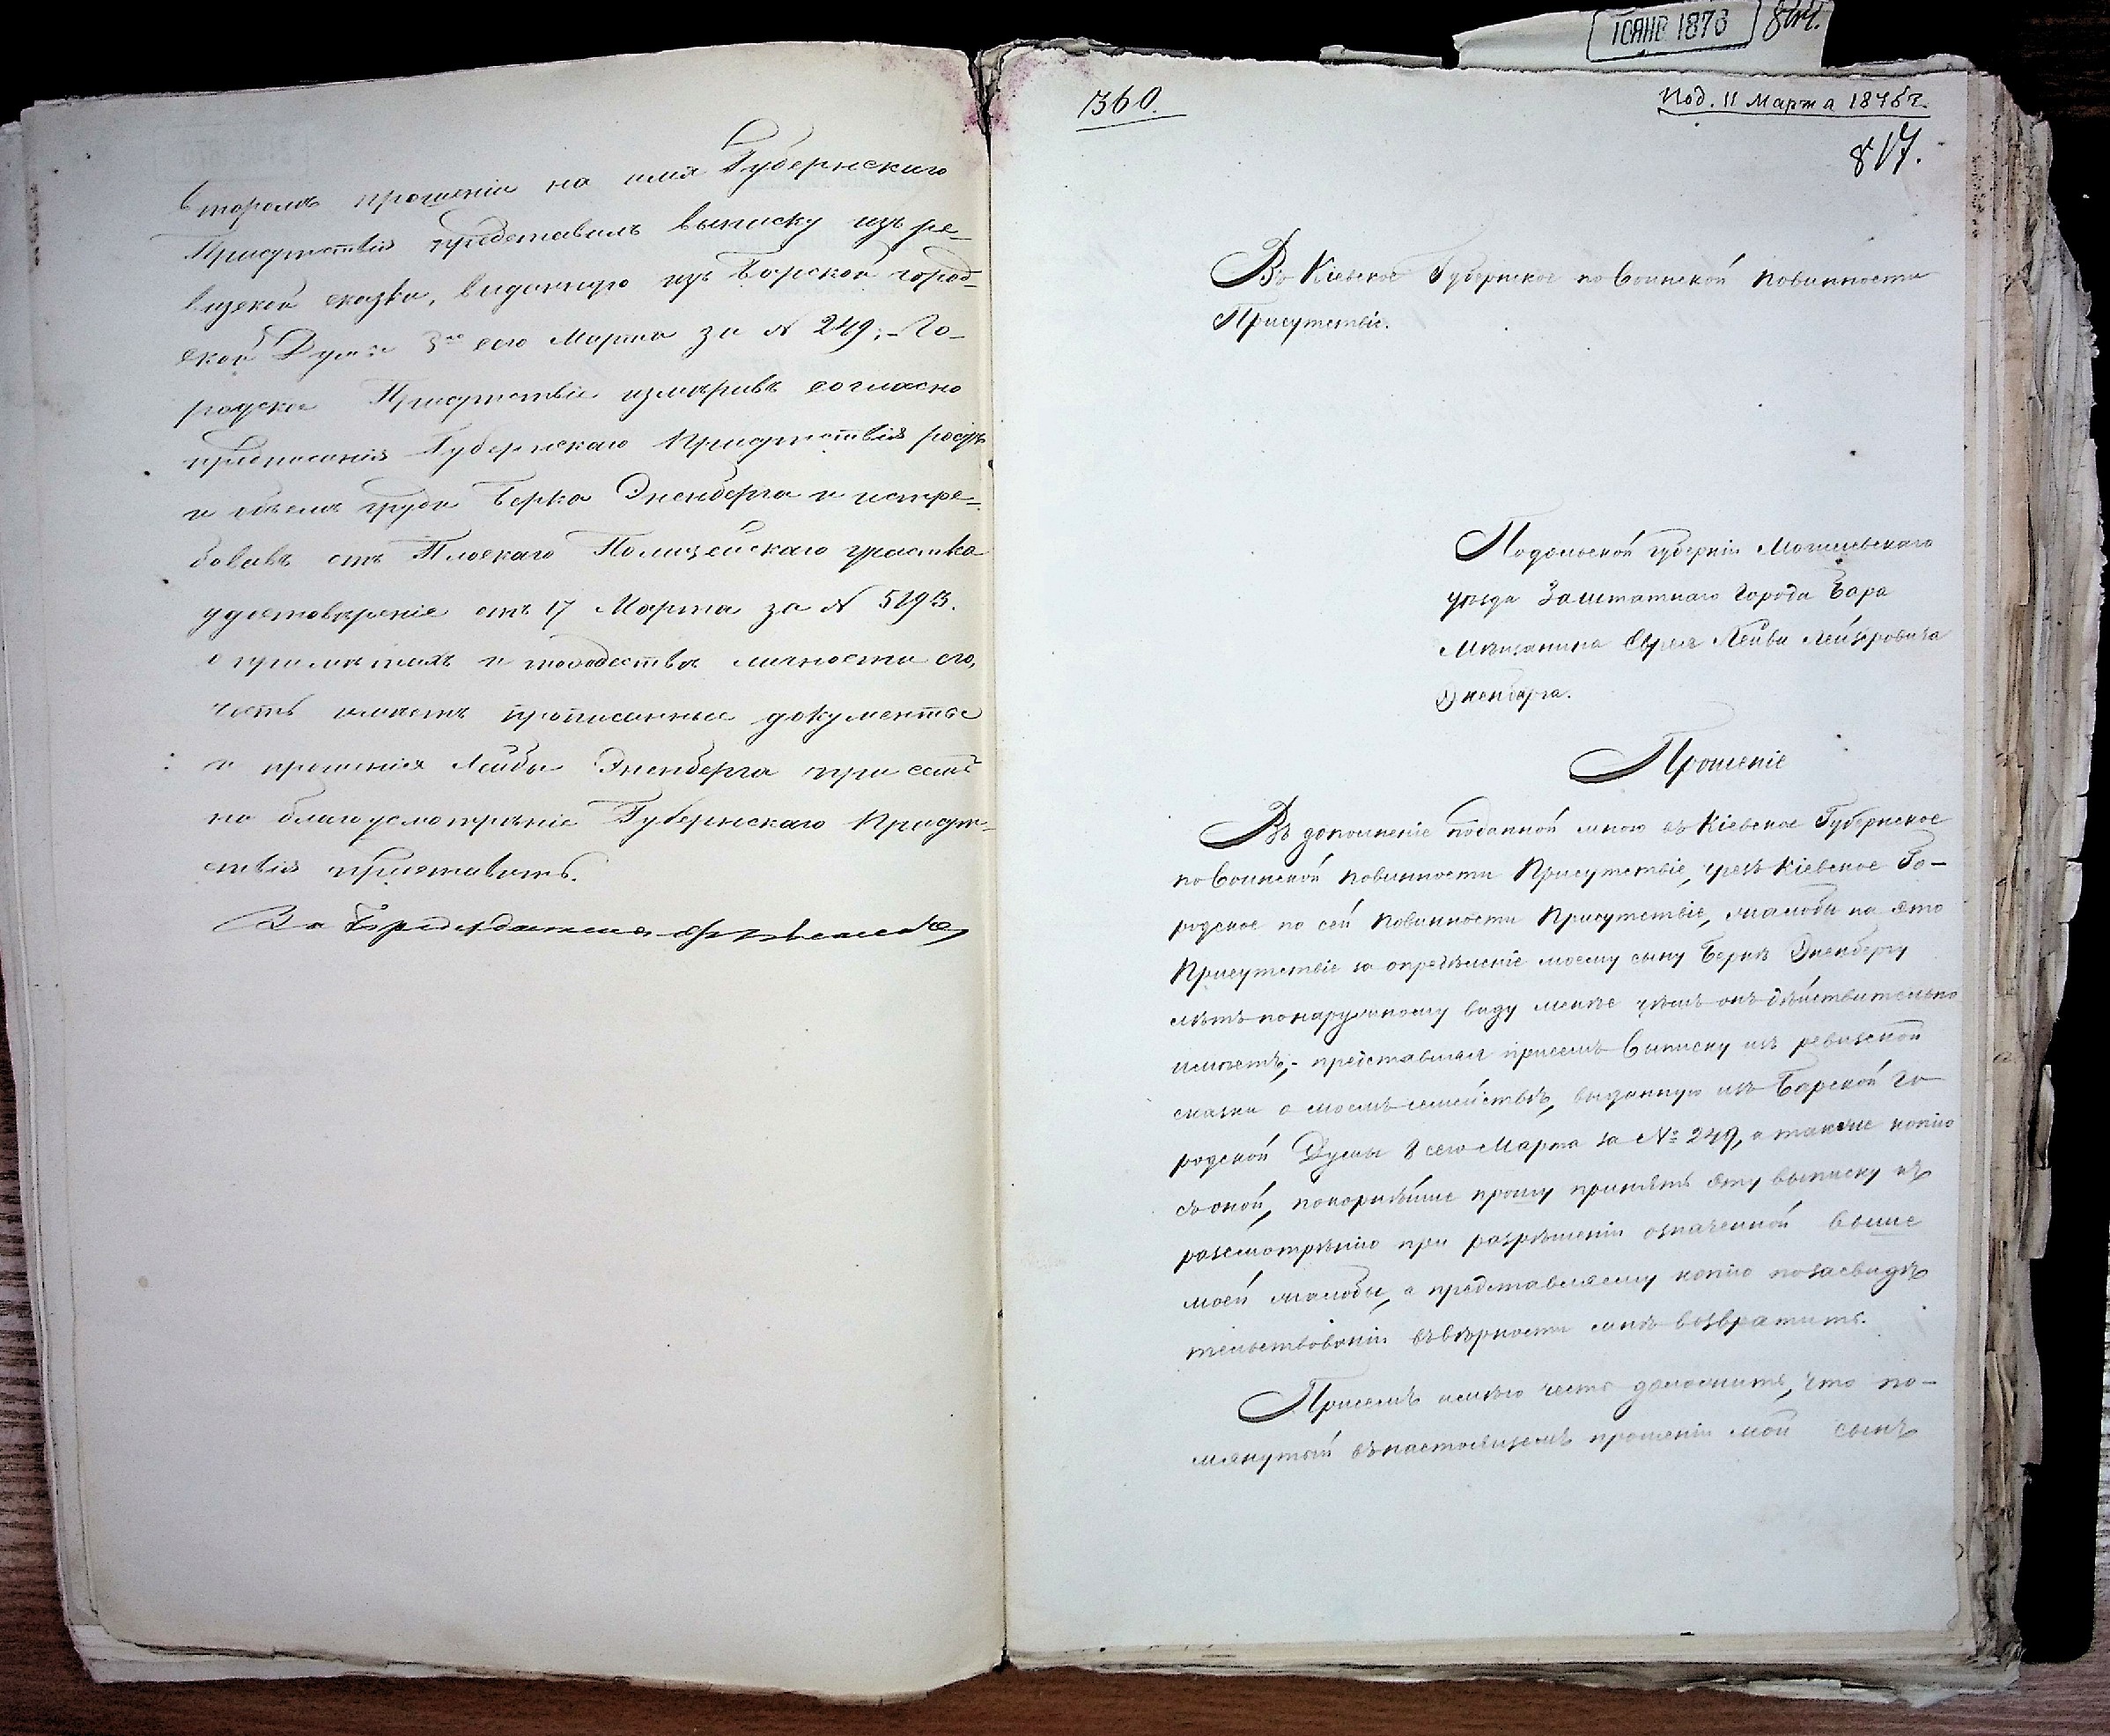 второмъ прошеніи на имя Губернскаго
Присутствія представилъ выписку изъ ре-
визской сказки, выданную изъ Барской город-
ской Думы сего Марта за № 249; Го-
родское Присутствіе измѣривъ согласно
предписанія Губернскаго Присутствія ростъ
и объемъ груди Берка Эненберга и истре-
бовавъ отъ Плоскаго Полицейскаго участка
удостовѣреніе отъ 17 Марта за № 5193.
о примѣтахъ и тождествѣ личности его,
честь имѣетъ прописанные документы
и прошенія Лейбы Эненберга при семъ
на благоусмотрѣніе Губернскаго Присут-
ствія представить.
За Предсѣдателя
10 ЯНВ 1876
360.
Под. 11 Марта 1876 г.
817.
Въ Кіевское Губернское по воинской повинности
Присутствіе.
Подольской губерніи Могилевскаго
уѣзда Заштатнаго Города Бара
Мѣщанина Еврея Лейбы Лейзеровича
Эненберга.
Прошеніе
Въ дополненіе поданной мною въ Кіевское Губернское
по воинской повинности Присутствіе, чрезъ Кіевское Го-
родское по сей повинности Присутствіе, жалобы на это
Присутствіе за опредѣленіе моему сыну Беркѣ Эненбергу
лѣтъ по наружному виду менѣе чѣмъ онъ дѣйствительно
имѣетъ,- представляя присемъ выписку изъ ревизской
сказки о моемъ семействѣ, выданную изъ Барской Го-
родской Думы 8 сего Марта за № 249, а также копію
съ оной, покорнѣйше прошу принять эту выписку къ
разсмотрѣнію при разрѣшеніи означенной выше
моей жалобы, а представляемую копію по засвидѣ
тельствованіи въ вѣрности мнѣ возвратить.
Присемъ имѣю честь доложить, что по-
мянутый въ настоящемъ прошеніи мой сынъ